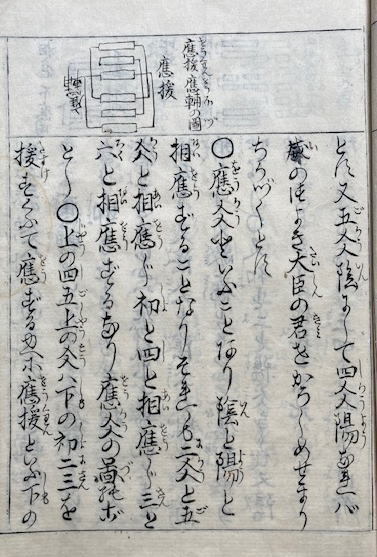 應援應輔の圖
應援
とす又五爻陰にして四爻陽なれバ
のつよき大臣の君をかろしめせまり
ちかづくとす
〇應爻といふことあり陰と陽と
相應ずることなりそれハ二爻と五
爻と相應じ初と四と相應じ三と
六と相應ずるなり應爻の圖
とし〇上の四五上の爻ハ下の初二三を
援すくふて應ずるゆへ應援といふ下の